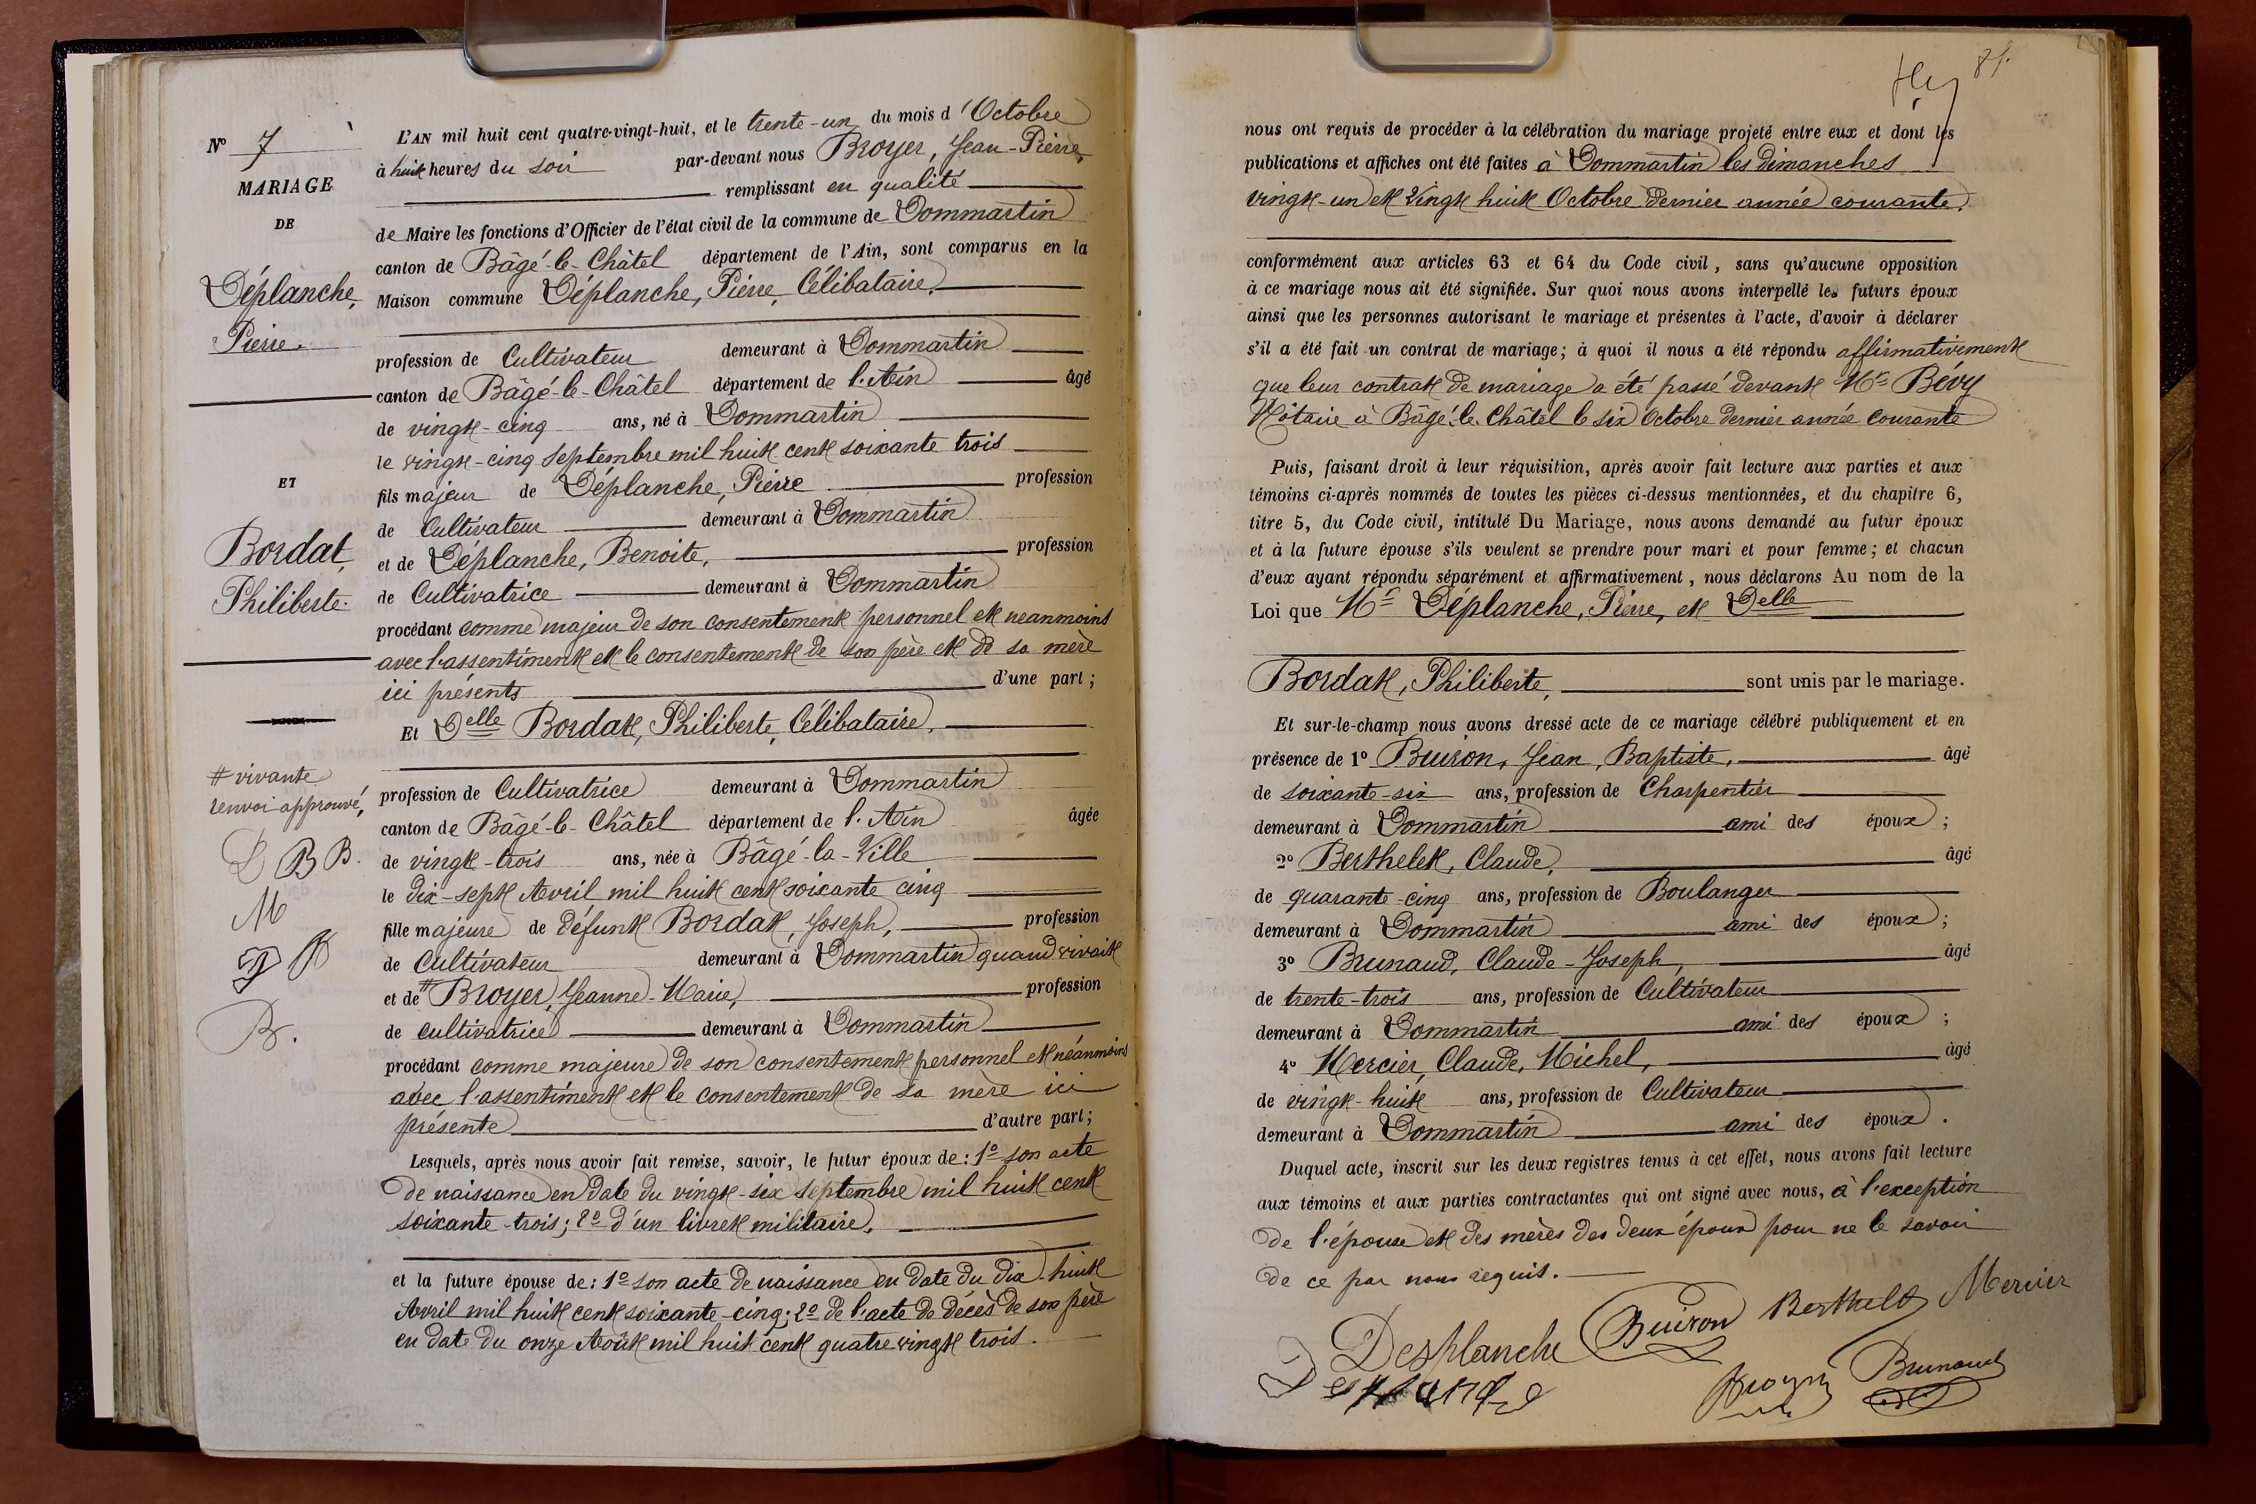 Nº 7
MARIAGE
DE
Déplanche,
Pierre.
ET
Bordat,
Philiberte.
# vivante
renvoi approuvé,
D B B.
M
B.
L'AN mil huit cent quatre-vingt-huit, et le trente-un du mois d'Octobre
à huit heures du soir par-devant nous Broyer, Jean-Pierre,
remplissant en qualité
de Maire les fonctions d'Officier de l'état civil de la commune de Dommartin
canton de Bâgé-le-Châtel département de l'Ain, sont comparus en la
Maison commune Déplanche, Pierre, Célibataire,
profession de Cultivateur demeurant à Dommartin
canton de Bâgé-le-Châtel département de l'Ain âgé
de vingt-cinq ans, né à Dommartin
le vingt-cinq Septembre mil huit cent soixante trois
fils majeur de Déplanche, Pierre profession
de Cultivateur demeurant à Dommartin
et de Déplanche, Benoite, profession
de Cultivatrice demeurant à Dommartin
procédant comme majeur de son consentement personnel et neanmoins
avec l'assentiment et le consentement de son père et de sa mère
ici présents d'une part ;
Et Delle Bordat, Philiberte, Célibataire,
profession de Cultivatrice demeurant à Dommartin
canton de Bâgé-le-Châtel département de l'Ain âgée
de vingt-trois ans, née à Bâgé-la-Ville
le dix-sept Avril mil huit cent soixante cinq
fille majeure de défunt Bordat, Joseph, profession
de Cultivateur demeurant à Dommartin quand vivait
et de # Broyer, Jeanne-Marie, profession
de cultivatrice demeurant à Dommartin
procédant comme majeure de son consentement personnel et néanmoins
avec l'assentiment et le consentement de sa mère ici
présente d'autre part ;
Lesquels, après nous avoir fait remise, savoir, le futur époux de : 1º son acte
de naissance en date du vingt-six septembre mil huit cent
soixante-trois; 2º d'un livret militaire,
et la future épouse de : 1º son acte de naissance en date du dix-huit
Avril mil huit cent soixante-cinq; 2º de l'acte de décès de son père
en date du onze Août mil huit cent quatre vingt trois.
81.
nous ont requis de procéder à la célébration du mariage projeté entre eux et dont les
publications et affiches ont été faites à Dommartin les dimanches
vingt-un et vingt huit Octobre dernier année courante,
conformément aux articles 63 et 64 du Code civil, sans qu'aucune opposition
à ce mariage nous ait été signifiée. Sur quoi nous avons interpellé les futurs époux
ainsi que les personnes autorisant le mariage et présentes à l'acte, d'avoir à déclarer
s'il a été fait un contrat de mariage ; à quoi il nous a été répondu affirmativement
que leur contrat de mariage a été passé devant Mre Bévy
Notaire à Bâgé-le-Châtel le six Octobre dernier année courante
Puis, faisant droit à leur réquisition, après avoir fait lecture aux parties et aux
témoins ci-après nommés de toutes les pièces ci-dessus mentionnées, et du chapitre 6,
titre 5, du Code civil, intitulé Du Mariage, nous avons demandé au futur époux
et à la future épouse s'ils veulent se prendre pour mari et pour femme ; et chacun
d'eux ayant répondu séparément et affirmativement, nous déclarons Au nom de la
Loi que Mr Déplanche, Pierre, et Delle
Bordat, Philiberte, sont unis par le mariage.
Et sur-le-champ nous avons dressé acte de ce mariage célébré publiquement et en
présence de 1º Buiron, Jean, Baptiste, âgé
de soixante-six ans, profession de Charpentier
demeurant à Dommartin ami des époux ;
2º Berthelet, Claude, âgé
de quarante-cinq ans, profession de Boulanger
demeurant à Dommartin ami des époux ;
3º Brunaud, Claude-Joseph, âgé
de trente-trois ans, profession de Cultivateur
demeurant à Dommartin ami des époux ;
4º Mercier, Claude, Michel, âgé
de vingt-huit ans, profession de Cultivateur
demeurant à Dommartin ami des époux.
Duquel acte, inscrit sur les deux registres tenus à cet effet, nous avons fait lecture
aux témoins et aux parties contractantes qui ont signé avec nous, à l'exception
de l'épouse et des mères des deux époux pour ne le savoir
de ce par nous requis.
Desplanche Buiron Berthelet Mercier
Broyer Brunaud